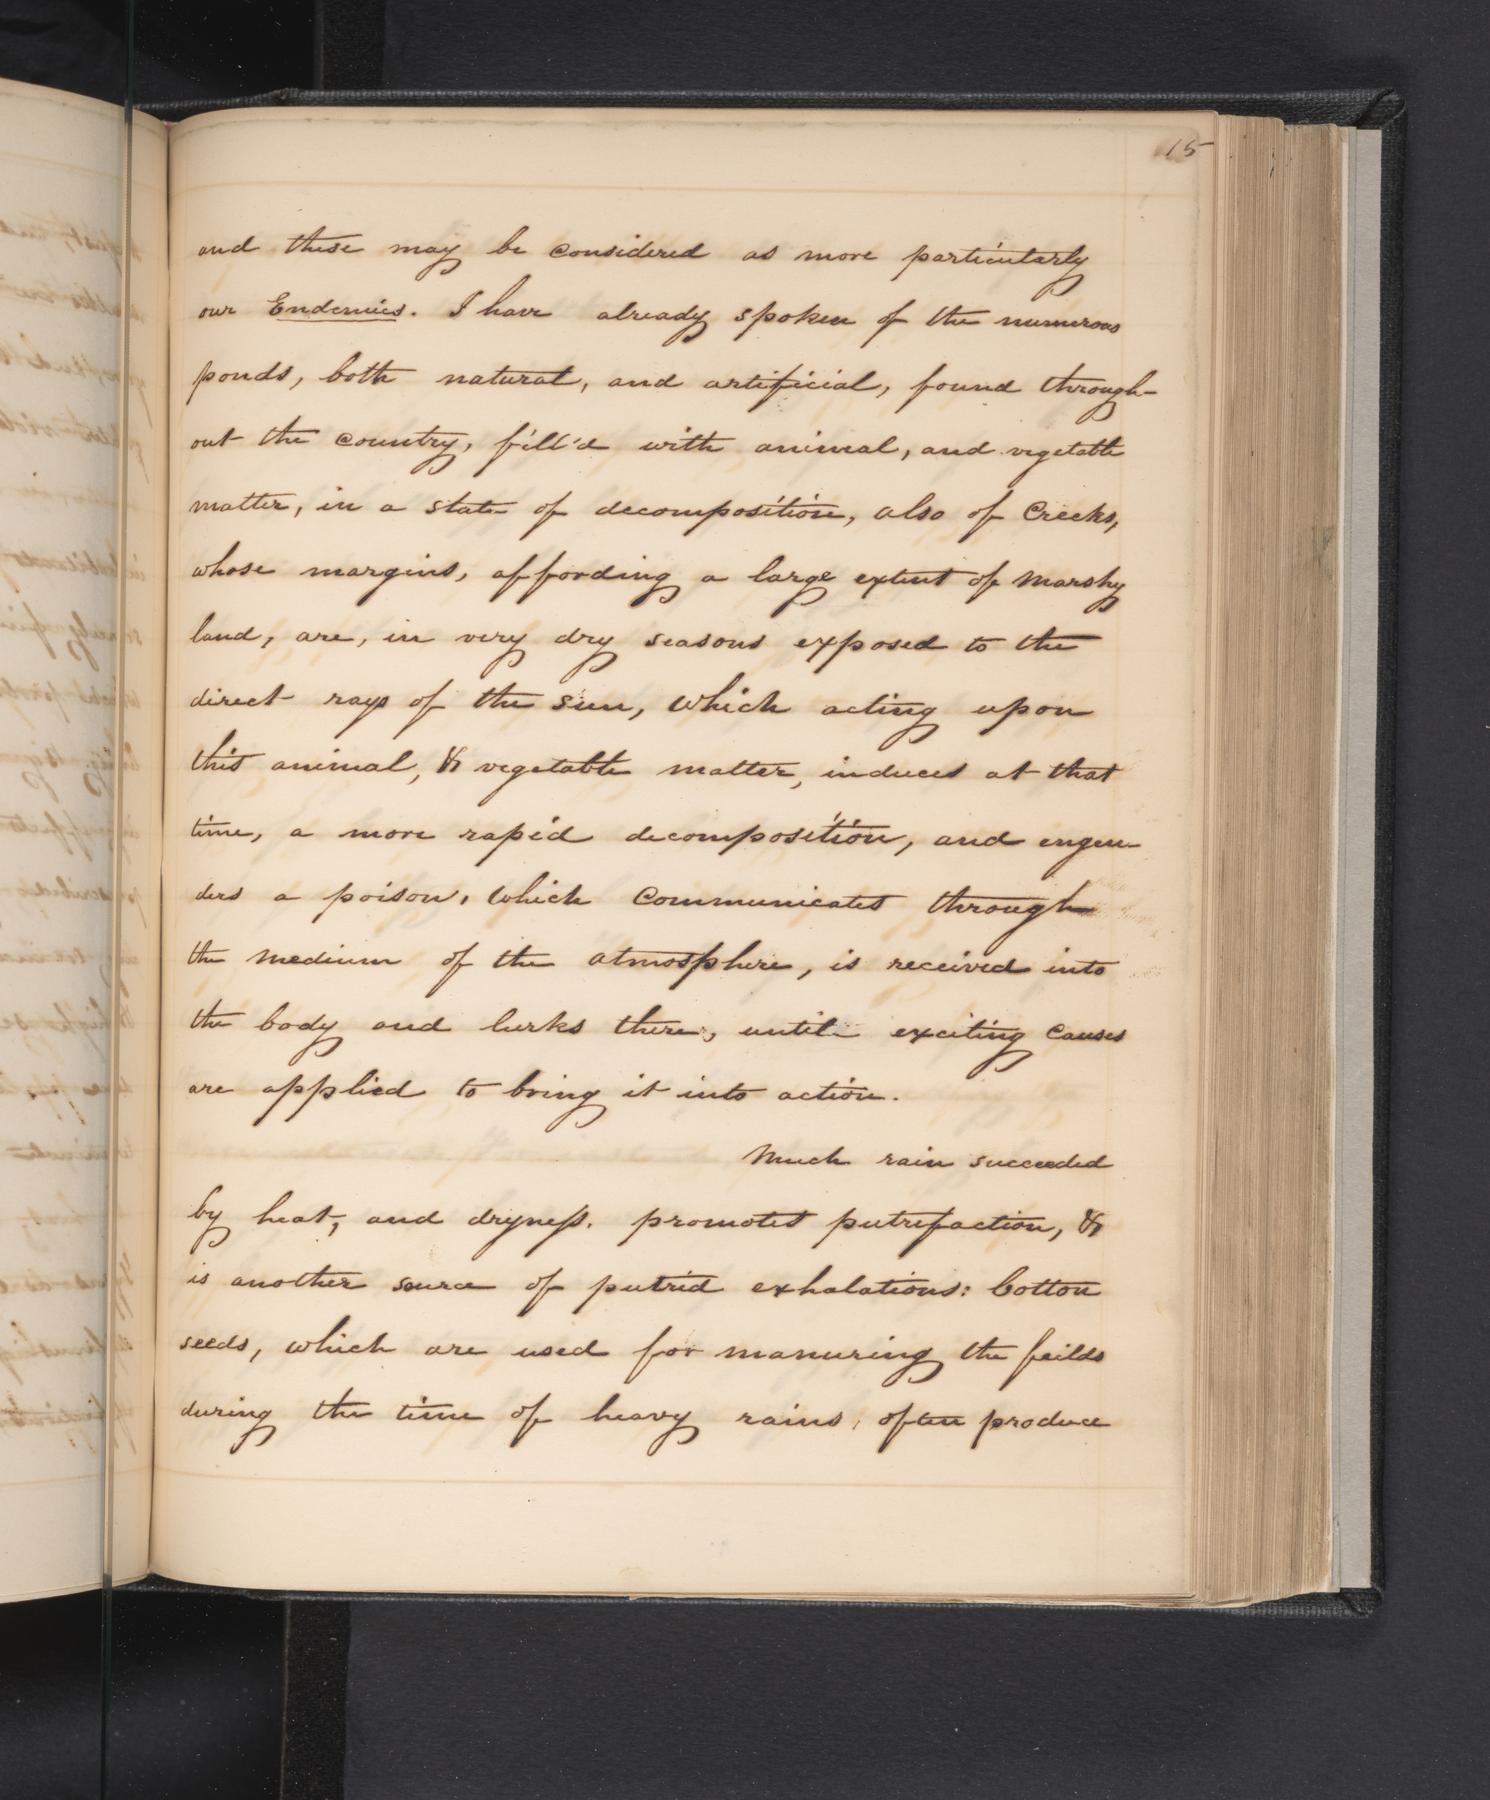 15
and these may be considered as more particularly
our Endemics. I have already spoken of the numerous
ponds, both natural, and artificial, found through-
out the country, fill'd with animal, and vegetable
matter, in a state of decomposition, also of Creeks,
whose margins, affording a large extent of Marshy
land, are, in very dry seasons exposed to the
direct rays of the sun, which acting upon
this animal, & vegetable matter, induces at that
time, a more rapid decomposition, and engen-
ders a poison, which communicates through
the medium of the atmosphere, is received into
the body and lurks there, until exciting causes
are applied to bring it into action.
Much rain succeeded
by heat, and dryness, promotes putrefaction, &
is another source of putrid exhalations: Cotton
seeds, which are used for manuring the feilds
during the time of heavy rains, often produce